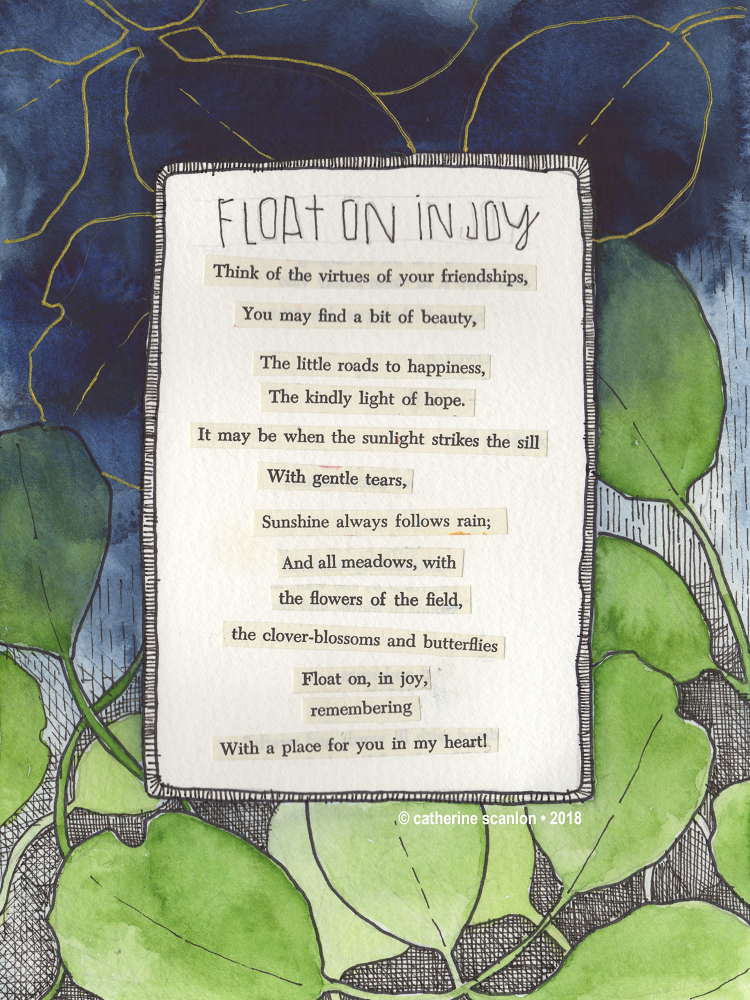 FLOAT ON IN JOY
Think of the virtues of your friendships,
You may find a bit of beauty,
The little roads to happiness,
The kindly light of hope.
It may be when the sunlight strikes the sill
With gentle tears,
Sunshine always follows rain;
And all meadows, with
the flowers of the field,
the clover-blossoms and butterflies
Float on, in joy,
remembering
With a place for you in my heart!
© catherine scanlon • 2018